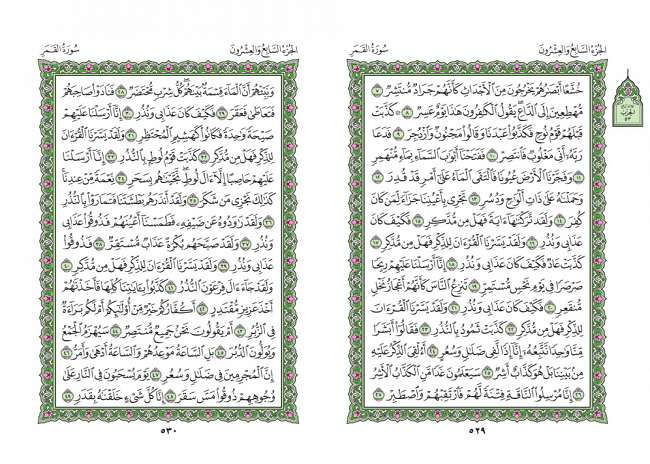 الجزء السابع والعشرون
سورة القمر
خُشَّعًا أَبْصَٰرُهُمْ يَخْرُجُونَ مِنَ ٱلْأَجْدَاثِ كَأَنَّهُمْ جَرَادٌ مُّنتَشِرٌ ٧
مُّهْطِعِينَ إِلَى ٱلدَّاعِ يَقُولُ ٱلْكَٰفِرُونَ هَٰذَا يَوْمٌ عَسِرٌ ٨ كَذَّبَتْ
قَبْلَهُمْ قَوْمُ نُوحٍ فَكَذَّبُوا۟ عَبْدَنَا وَقَالُوا۟ مَجْنُونٌ وَٱزْدُجِرَ ٩ فَدَعَا
رَبَّهُۥٓ أَنِّى مَغْلُوبٌ فَٱنتَصِرْ ١٠ فَفَتَحْنَآ أَبْوَٰبَ ٱلسَّمَآءِ بِمَآءٍ مُّنْهَمِرٍ
١١ وَفَجَّرْنَا ٱلْأَرْضَ عُيُونًا فَٱلْتَقَى ٱلْمَآءُ عَلَىٰٓ أَمْرٍ قَدْ قُدِرَ ١٢
وَحَمَلْنَٰهُ عَلَىٰ ذَاتِ أَلْوَٰحٍ وَدُسُرٍ ١٣ تَجْرِى بِأَعْيُنِنَا جَزَآءً لِّمَن كَانَ
كُفِرَ ١٤ وَلَقَد تَّرَكْنَٰهَآ ءَايَةً فَهَلْ مِن مُّدَّكِرٍ ١٥ فَكَيْفَ كَانَ
عَذَابِى وَنُذُرِ ١٦ وَلَقَدْ يَسَّرْنَا ٱلْقُرْءَانَ لِلذِّكْرِ فَهَلْ مِن مُّدَّكِرٍ ١٧
كَذَّبَتْ عَادٌ فَكَيْفَ كَانَ عَذَابِى وَنُذُرِ ١٨ إِنَّآ أَرْسَلْنَا عَلَيْهِمْ رِيحًا
صَرْصَرًا فِى يَوْمِ نَحْسٍ مُّسْتَمِرٍّ ١٩ تَنزِعُ ٱلنَّاسَ كَأَنَّهُمْ أَعْجَازُ نَخْلٍ
مُّنقَعِرٍ ٢٠ فَكَيْفَ كَانَ عَذَابِى وَنُذُرِ ٢١ وَلَقَدْ يَسَّرْنَا ٱلْقُرْءَانَ
لِلذِّكْرِ فَهَلْ مِن مُّدَّكِرٍ ٢٢ كَذَّبَتْ ثَمُودُ بِٱلنُّذُرِ ٢٣ فَقَالُوٓا۟ أَبَشَرًا
مِّنَّا وَٰحِدًا نَّتَّبِعُهُۥٓ إِنَّآ إِذًا لَّفِى ضَلَٰلٍ وَسُعُرٍ ٢٤ أَءُلْقِىَ ٱلذِّكْرُ عَلَيْهِ
مِنۢ بَيْنِنَا بَلْ هُوَ كَذَّابٌ أَشِرٌ ٢٥ سَيَعْلَمُونَ غَدًا مَّنِ ٱلْكَذَّابُ ٱلْأَشِرُ
٢٦ إِنَّا مُرْسِلُوا۟ ٱلنَّاقَةِ فِتْنَةً لَّهُمْ فَٱرْتَقِبْهُمْ وَٱصْطَبِرْ ٢٧
٥٢٩
الجزء السابع والعشرون
سورة القمر
وَنَبِّئْهُمْ أَنَّ ٱلْمَآءَ قِسْمَةٌۢ بَيْنَهُمْ كُلُّ شِرْبٍ مُّحْتَضَرٌ ٢٨ فَنَادَوْا۟ صَاحِبَهُمْ
فَتَعَاطَىٰ فَعَقَرَ ٢٩ فَكَيْفَ كَانَ عَذَابِى وَنُذُرِ ٣٠ إِنَّآ أَرْسَلْنَا عَلَيْهِمْ
صَيْحَةً وَٰحِدَةً فَكَانُوا۟ كَهَشِيمِ ٱلْمُحْتَظِرِ ٣١ وَلَقَدْ يَسَّرْنَا ٱلْقُرْءَانَ
لِلذِّكْرِ فَهَلْ مِن مُّدَّكِرٍ ٣٢ كَذَّبَتْ قَوْمُ لُوطٍۭ بِٱلنُّذُرِ ٣٣ إِنَّآ أَرْسَلْنَا
عَلَيْهِمْ حَاصِبًا إِلَّآ ءَالَ لُوطٍ نَّجَّيْنَٰهُم بِسَحَرٍ ٣٤ نِّعْمَةً مِّنْ عِندِنَا
كَذَٰلِكَ نَجْزِى مَن شَكَرَ ٣٥ وَلَقَدْ أَنذَرَهُم بَطْشَتَنَا فَتَمَارَوْا۟ بِٱلنُّذُرِ
٣٦ وَلَقَدْ رَٰوَدُوهُ عَن ضَيْفِهِۦ فَطَمَسْنَآ أَعْيُنَهُمْ فَذُوقُوا۟ عَذَابِى
وَنُذُرِ ٣٧ وَلَقَدْ صَبَّحَهُم بُكْرَةً عَذَابٌ مُّسْتَقِرٌّ ٣٨ فَذُوقُوا۟
عَذَابِى وَنُذُرِ ٣٩ وَلَقَدْ يَسَّرْنَا ٱلْقُرْءَانَ لِلذِّكْرِ فَهَلْ مِن مُّدَّكِرٍ ٤٠
وَلَقَدْ جَآءَ ءَالَ فِرْعَوْنَ ٱلنُّذُرُ ٤١ كَذَّبُوا۟ بِـَٔايَٰتِنَا كُلِّهَا فَأَخَذْنَٰهُمْ
أَخْذَ عَزِيزٍ مُّقْتَدِرٍ ٤٢ أَكُفَّارُكُمْ خَيْرٌ مِّنْ أُو۟لَٰٓئِكُمْ أَمْ لَكُم بَرَآءَةٌ
فِى ٱلزُّبُرِ ٤٣ أَمْ يَقُولُونَ نَحْنُ جَمِيعٌ مُّنتَصِرٌ ٤٤ سَيُهْزَمُ ٱلْجَمْعُ
وَيُوَلُّونَ ٱلدُّبُرَ ٤٥ بَلِ ٱلسَّاعَةُ مَوْعِدُهُمْ وَٱلسَّاعَةُ أَدْهَىٰ وَأَمَرُّ ٤٦
إِنَّ ٱلْمُجْرِمِينَ فِى ضَلَٰلٍ وَسُعُرٍ ٤٧ يَوْمَ يُسْحَبُونَ فِى ٱلنَّارِ عَلَىٰ
وُجُوهِهِمْ ذُوقُوا۟ مَسَّ سَقَرَ ٤٨ إِنَّا كُلَّ شَىْءٍ خَلَقْنَٰهُ بِقَدَرٍ ٤٩
٥٣٠